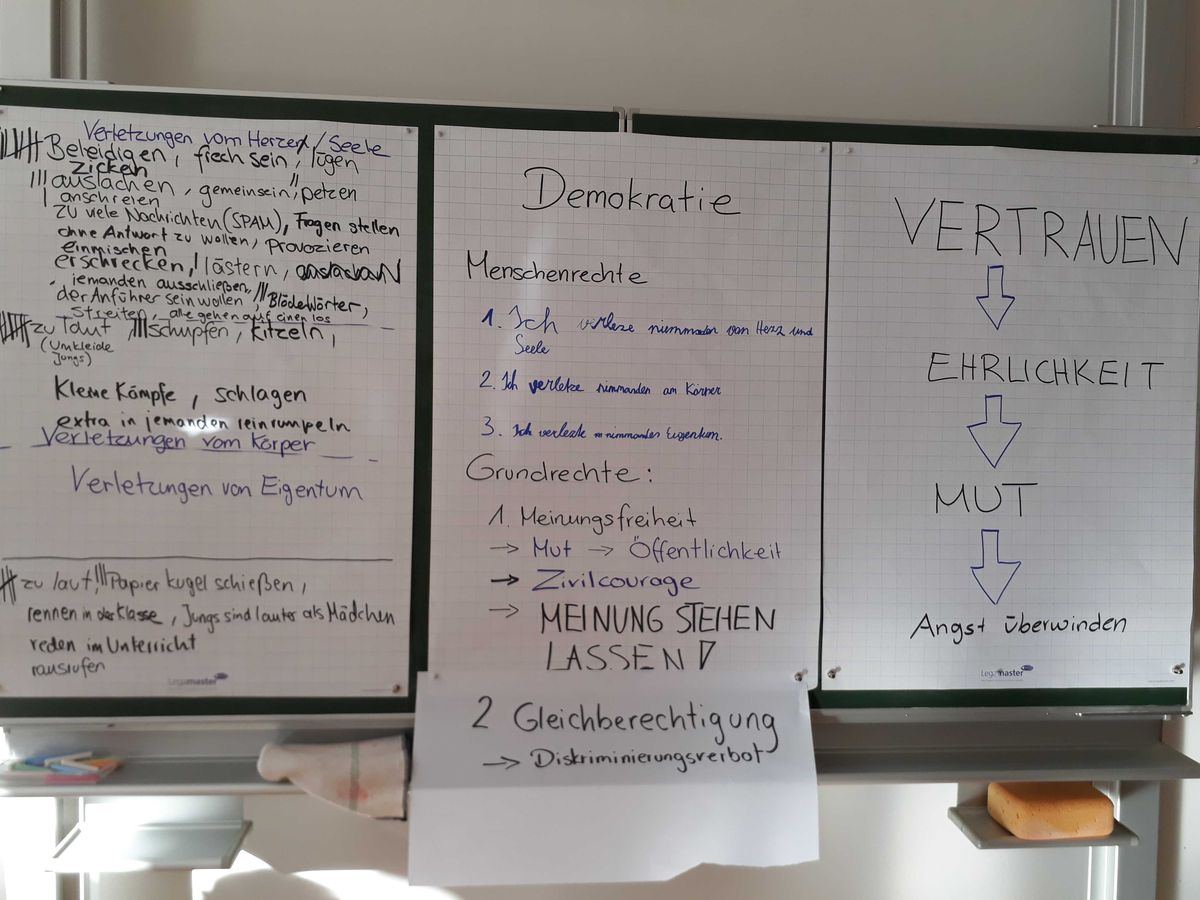 Verletzungen vom Herzen / Seele
Beleidigen, frech sein, lügen
zicken
auslachen, gemeinsein, petzen
anschreien
zu viele Nachrichten (SPAM), Fragen stellen
ohne Antwort zu wollen, provozieren
einmischen
erschrecken, lästern,
jemanden ausschließen,
der Anführer sein wollen, Blöde Wörter,
streiten, alle gehen auf einen los
zu laut schupfen, kitzeln,
(Umkleide
Jungs)
kleine Kämpfe, schlagen
extra in jemanden reinrumpeln
Verletzungen vom Körper
Verletzungen von Eigentum
zu laut, Papier kugel schießen,
rennen in der Klasse, Jungs sind lauter als Mädchen
reden im Unterricht
rausrufen
Legamaster
Demokratie
Menschenrechte
1. Ich verleze nimmanden von Herz und
Seele
2. Ich verletze nimmanden am Körper
3. Ich verlezte nimmanden Eigentum.
Grundrechte:
1. Meinungsfreiheit
→ Mut → Öffentlichkeit
→ Zivilcourage
→ MEINUNG STEHEN
LASSEN!
2 Gleichberechtigung
→ Diskriminierungsverbot
VERTRAUEN
EHRLICHKEIT
MUT
Angst überwinden
Legamaster